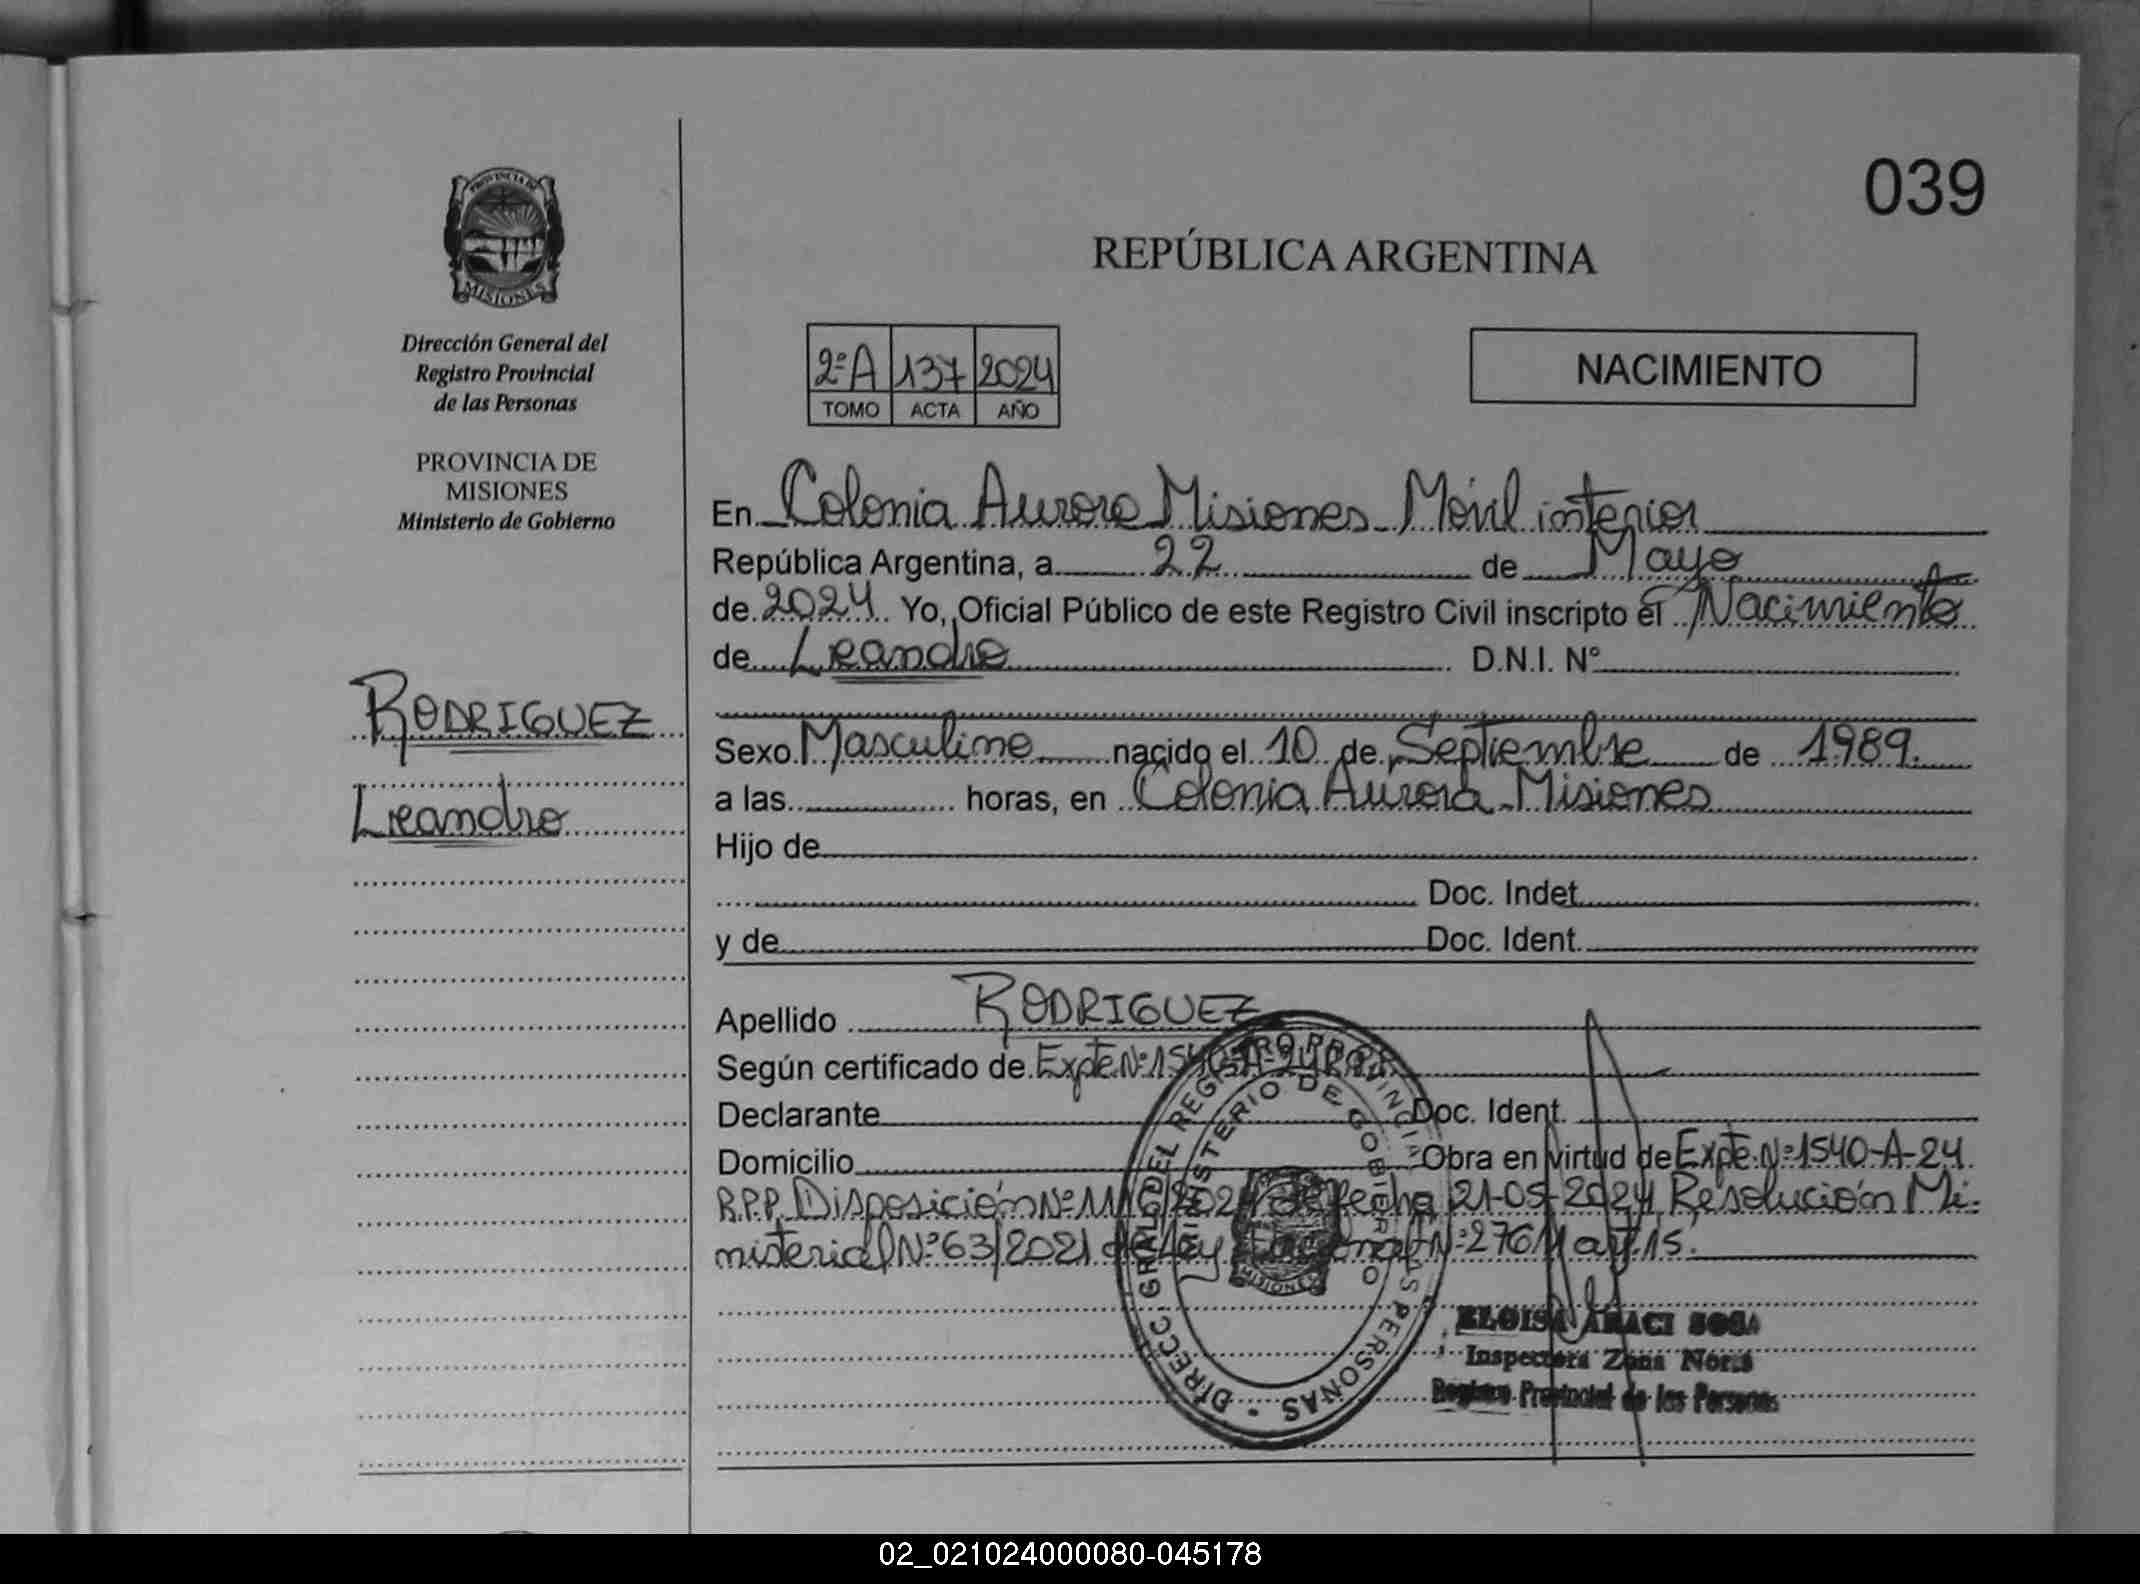 039
PROVINCIA DE
MISIONES
Dirección General del
Registro Provincial
de las Personas
PROVINCIA DE
MISIONES
Ministerio de Gobierno
RODRIGUEZ
Leandro
REPÚBLICA ARGENTINA
2ºA 137 2024
TOMO ACTA AÑO
NACIMIENTO
En Colonia Aurora Misiones Móvil interior
República Argentina, a 22 de Mayo
de 2024 Yo, Oficial Público de este Registro Civil inscripto el Nacimiento
de Leandro D.N.I. Nº
Sexo Masculino nacido el 10 de Septiembre de 1989.
a las horas, en Colonia Aurora Misiones
Hijo de
Doc. Indet.
y de Doc. Ident.
Apellido RODRIGUEZ
Según certificado de Expte Nº 1540-A-24
Declarante Doc. Ident.
Domicilio Obra en virtud de Expte. Nº 1540-A-24
R.P.P. Disposición Nº /2024 de fecha 21-05-2024 Resolución Mi-
nisterial Nº 63/2021 Art. 15.
DIRECC. GRAL. DEL REGISTRO PROVINCIAL DE LAS PERSONAS
MINISTERIO DE GOBIERNO
MISIONES
ELOISA ARACI SOSA
Inspectora Zona Norte
Registro Provincial de las Personas
02_021024000080-045178